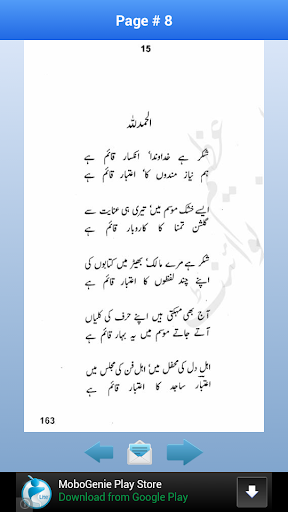 Page # 8
15
الحمدللہ
شکر ہے خداوندا' انکسار قائم ہے
ہم نیاز مندوں کا' اعتبار قائم ہے
ایسے خشک موسم میں' تیری ہی عنایت سے
گلشن تمنا کا کاروبار قائم ہے
شکر ہے مرے مالک' بھیڑ میں کتابوں کی
اپنے چند لفظوں کا' اعتبار قائم ہے
آج بھی مہکتی ہیں اپنے حرف کی کلیاں
آتے جاتے موسم میں یہ بہار قائم ہے
اہل دل کی محفل میں' اہل فن کی مجلس میں
اعتبار ساجد کا اعتبار قائم ہے
163
MoboGenie Play Store
Download from Google Play